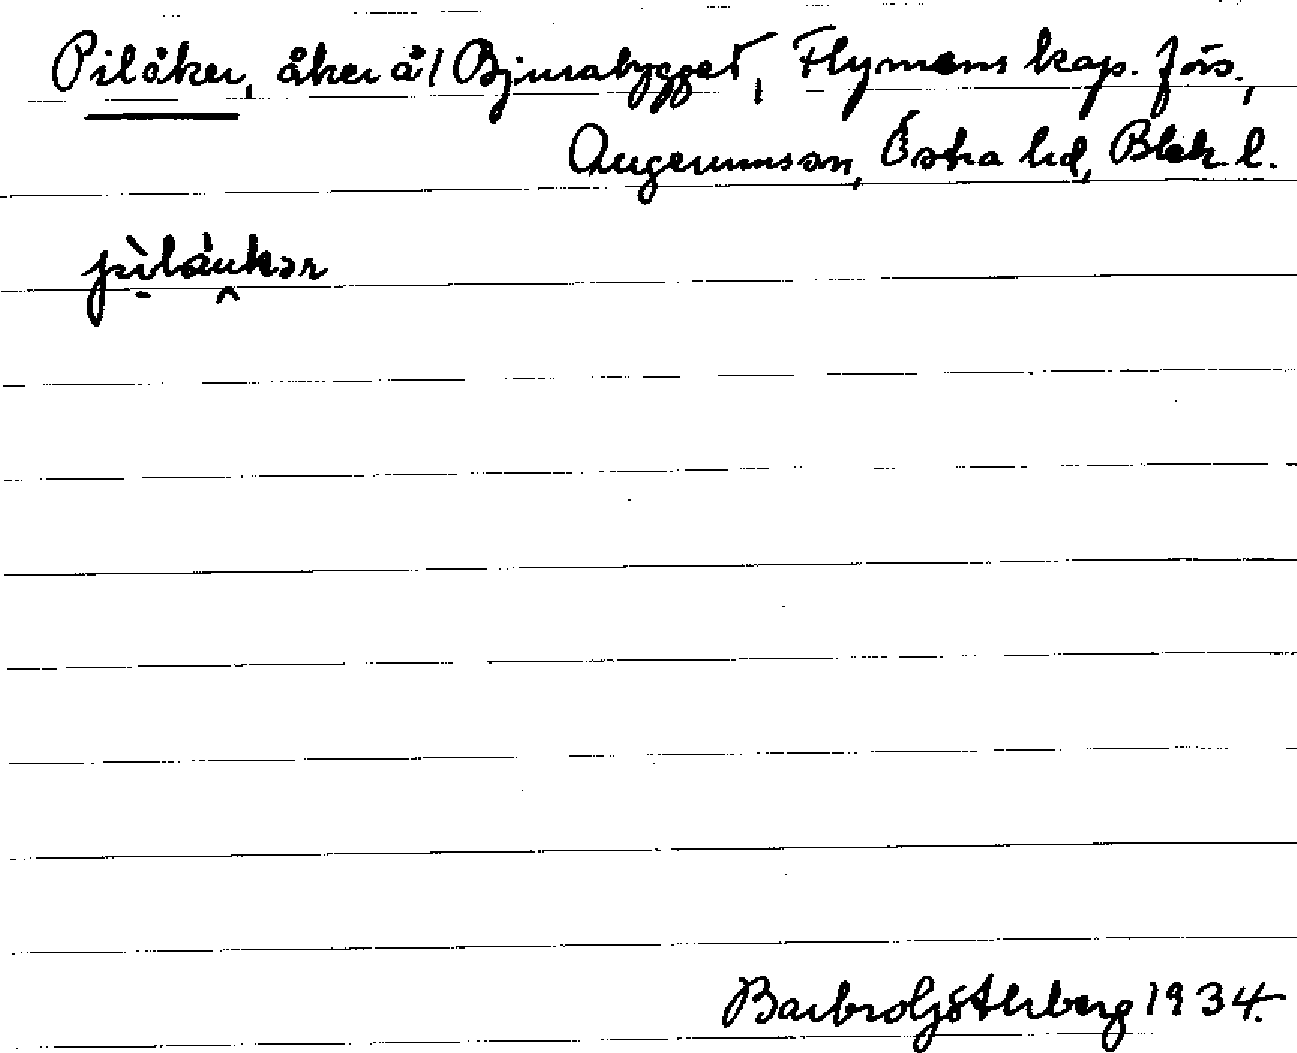 Pilåker, åker å/ Bjurabygget, Flymens kap. förs.,
Augerumssn, Östra hd, Blek. l.
pìláukər
Barbro Götherberg 1934.